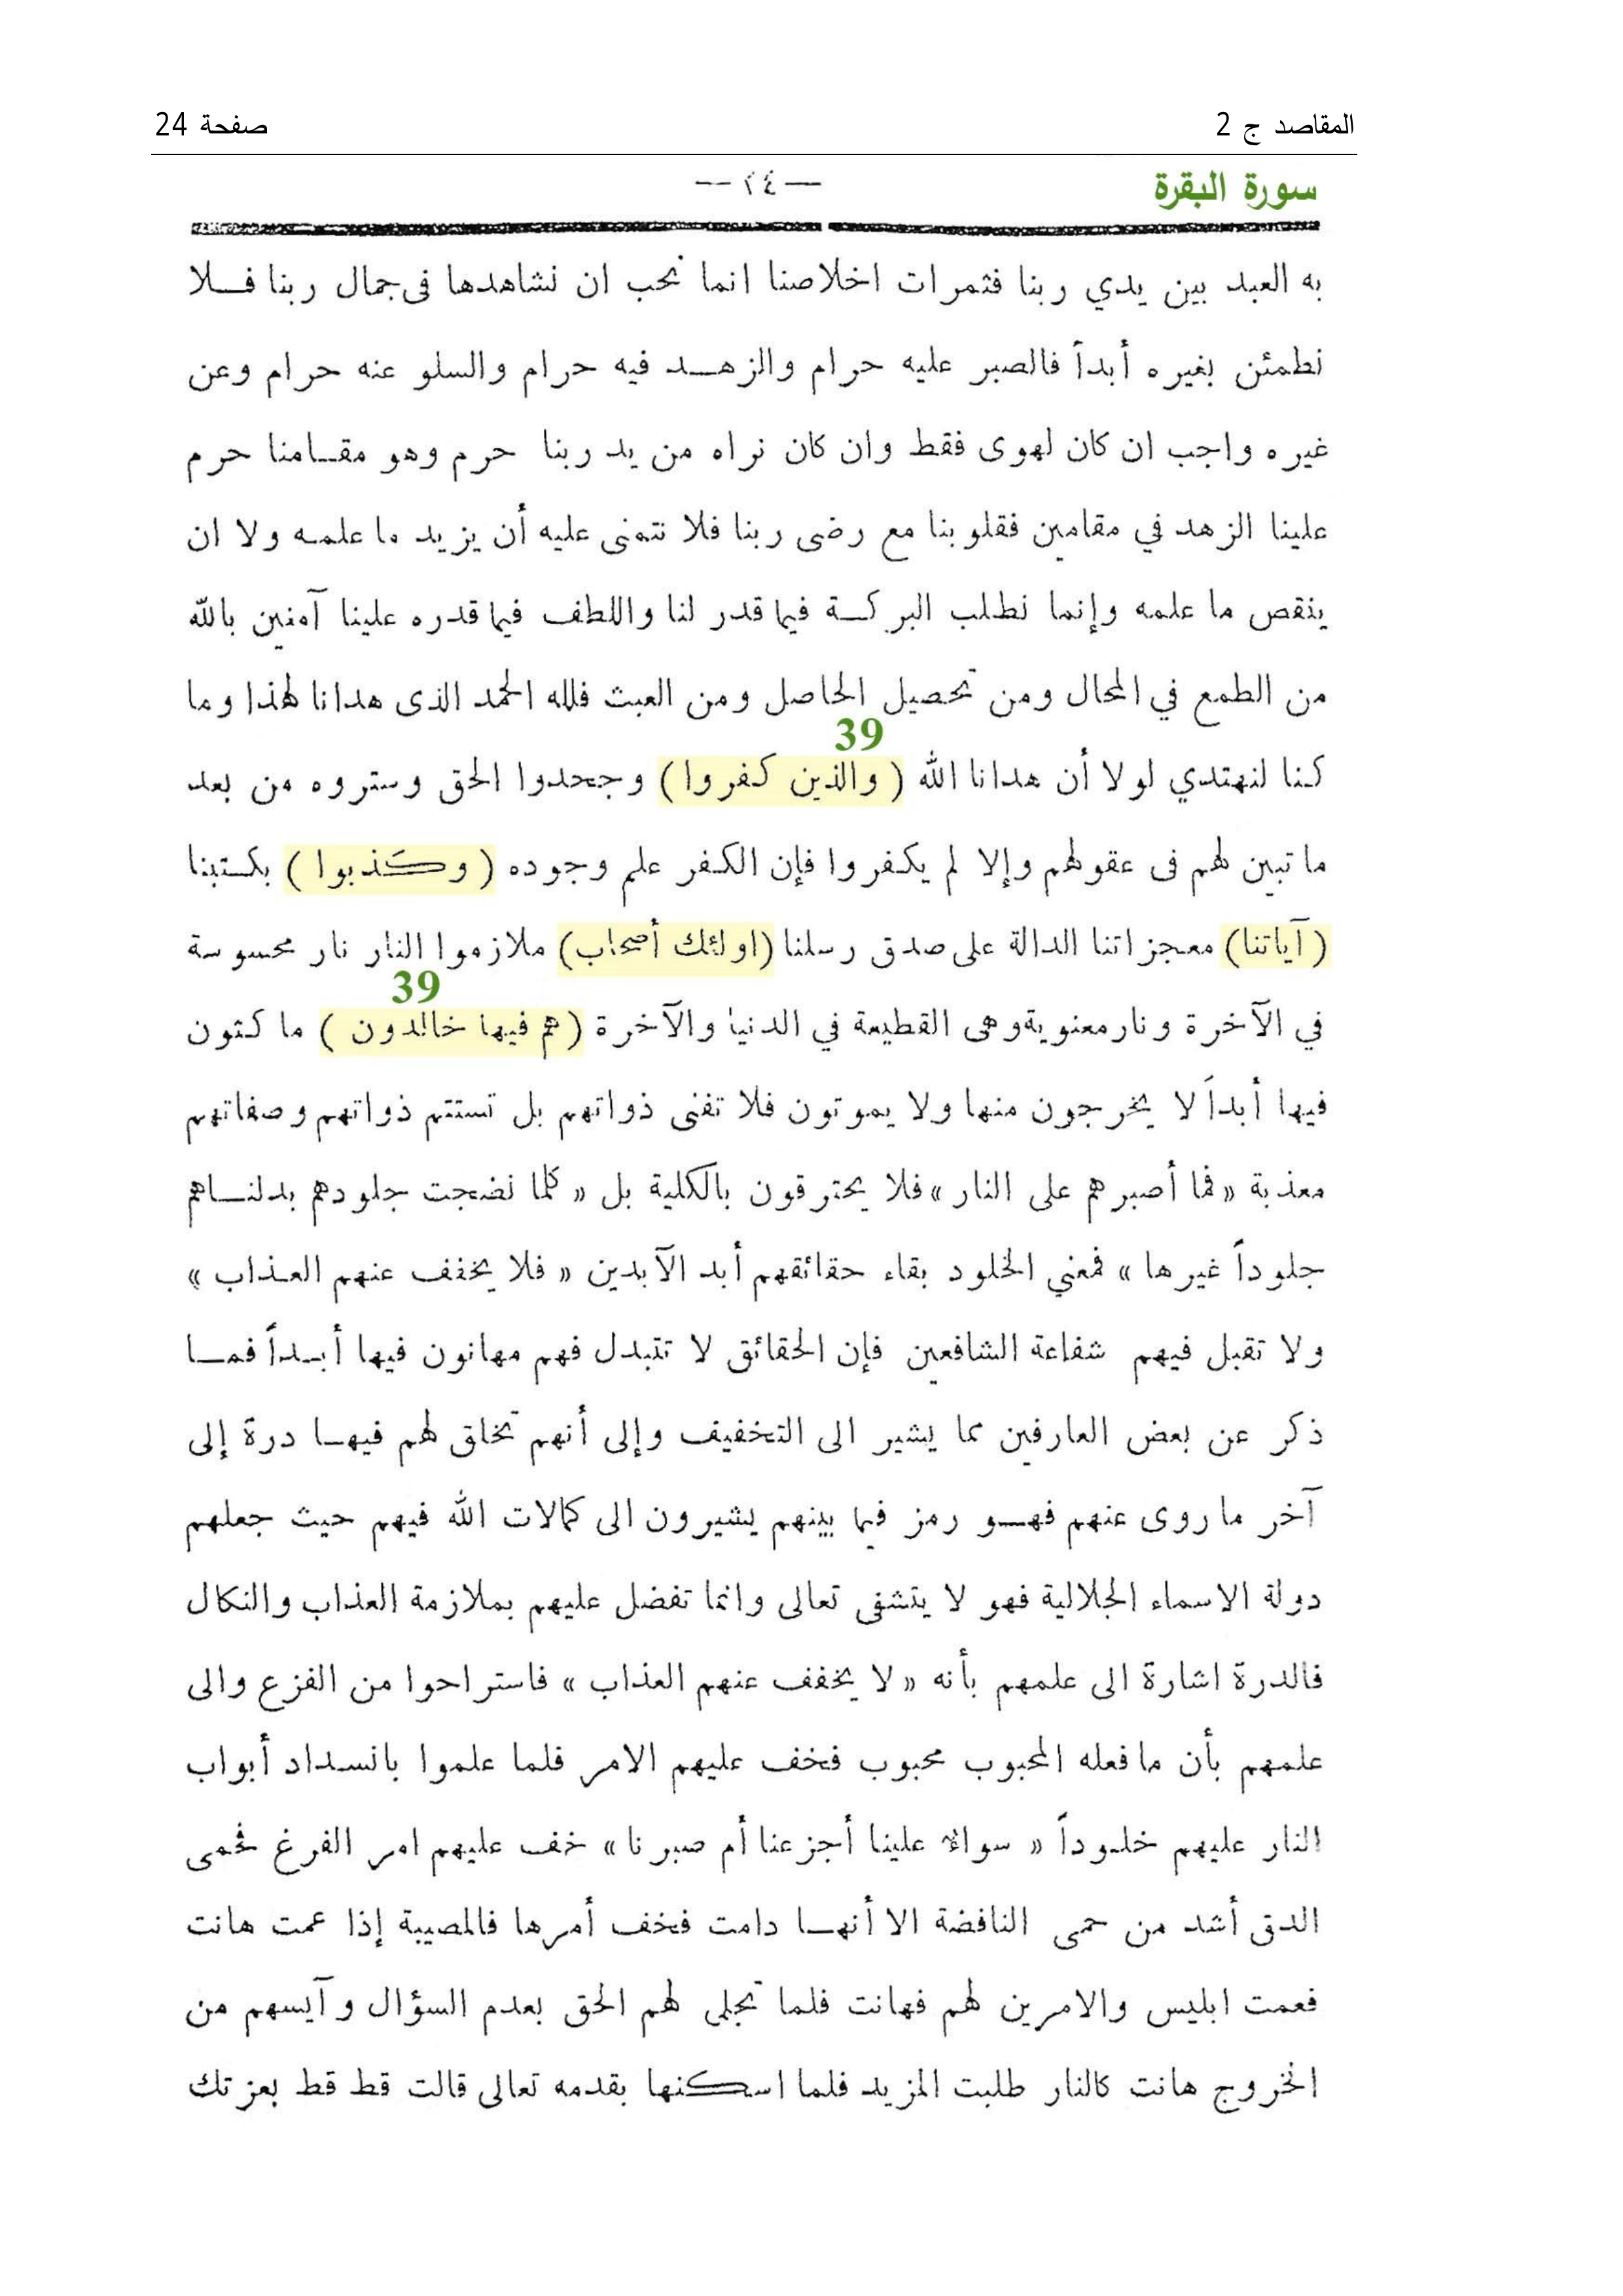 المقاصد ج 2
صفحة 24
سورة البقرة
— ٢٤ —
به العبد بين يدي ربنا فثمرات اخلاصنا انما نحب ان نشاهدها فى جمال ربنا فلا
نطمئن بغيره أبداً فالصبر عليه حرام والزهد فيه حرام والسلو عنه حرام وعن
غيره واجب ان كان لهوى فقط وان كان نراه من يد ربنا حرم وهو مقامنا حرم
علينا الزهد في مقامين فقلوبنا مع رضى ربنا فلا نتمنى عليه أن يزيد ما علمه ولا ان
ينقص ما علمه وإنما نطلب البركة فيما قدر لنا واللطف فيما قدره علينا آمنين بالله
من الطمع في المحال ومن تحصيل الحاصل ومن العبث فلله الحمد الذى هدانا لهذا وما
39
كنا لنهتدي لولا أن هدانا الله ( والذين كفروا ) وجحدوا الحق وستروه من بعد
ما تبين لهم فى عقولهم وإلا لم يكفروا فإن الكفر علم وجوده ( وكذبوا ) بكتبنا
( آياتنا ) معجزاتنا الدالة على صدق رسلنا ( اولئك أصحاب ) ملازموا النار نار محسوسة
39
في الآخرة ونار معنوية وهى القطيعة في الدنيا والآخرة ( هم فيها خالدون ) ما كثون
فيها أبداً لا يخرجون منها ولا يموتون فلا تفنى ذواتهم بل تستتم ذواتهم وصفاتهم
معذبة « فما أصبرهم على النار » فلا يحترقون بالكلية بل « كلما نضجت جلودهم بدلناهم
جلوداً غيرها » فمعني الخلود بقاء حقائقهم أبد الآبدين « فلا يخفف عنهم العذاب »
ولا تقبل فيهم شفاعة الشافعين فإن الحقائق لا تتبدل فهم مهانون فيها أبداً فما
ذكر عن بعض العارفين مما يشير الى التخفيف وإلى أنهم تخلق لهم فيها درة إلى
آخر ما روى عنهم فهو رمز فيما بينهم يشيرون الى كمالات الله فيهم حيث جعلهم
دولة الاسماء الجلالية فهو لا يتشفى تعالى وانما تفضل عليهم بملازمة العذاب والنكال
فالدرة اشارة الى علمهم بأنه « لا يخفف عنهم العذاب » فاستراحوا من الفزع والى
علمهم بأن ما فعله المحبوب محبوب فخف عليهم الامر فلما علموا بانسداد أبواب
النار عليهم خلوداً « سواء علينا أجزعنا أم صبرنا » خف عليهم امر الفرغ فحمى
الدق أشد من حمى النافضة الا أنها دامت فخف أمرها فالمصيبة إذا عمت هانت
فعمت ابليس والامرين لهم فهانت فلما تجلى لهم الحق بعدم السؤال وآيسهم من
الخروج هانت كالنار طلبت المزيد فلما اسكنها بقدمه تعالى قالت قط قط بعزتك